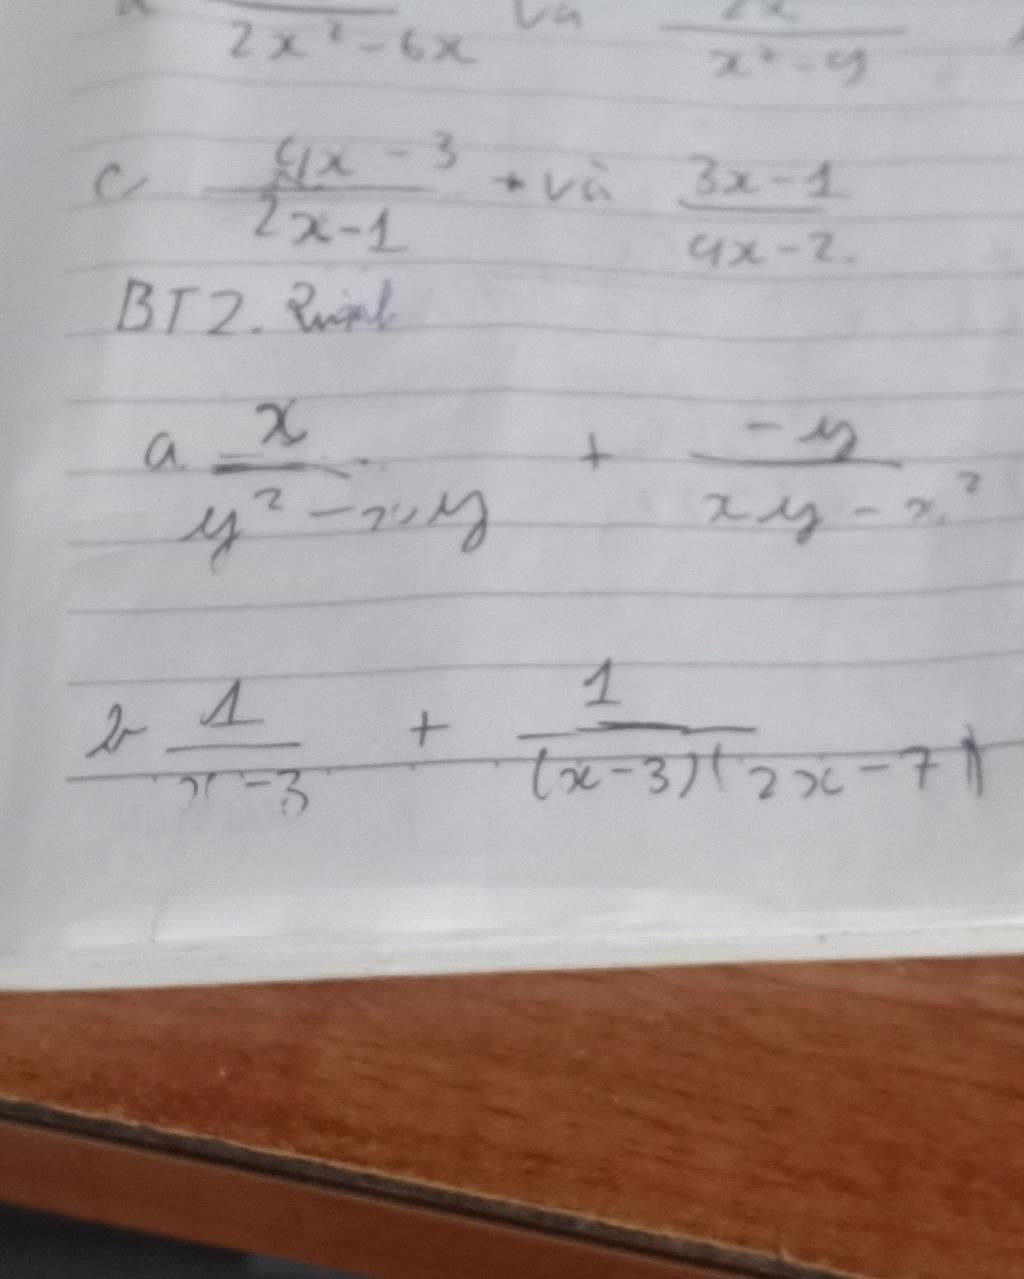 2x² - 6x và x² - 9
c 4x - 3 / 2x - 1 + và 3x - 1 / 4x - 2.
BT2.
a x / y² - xy + -y / xy - x²
b 1 / x - 3 + 1 / (x - 3)(2x - 7)